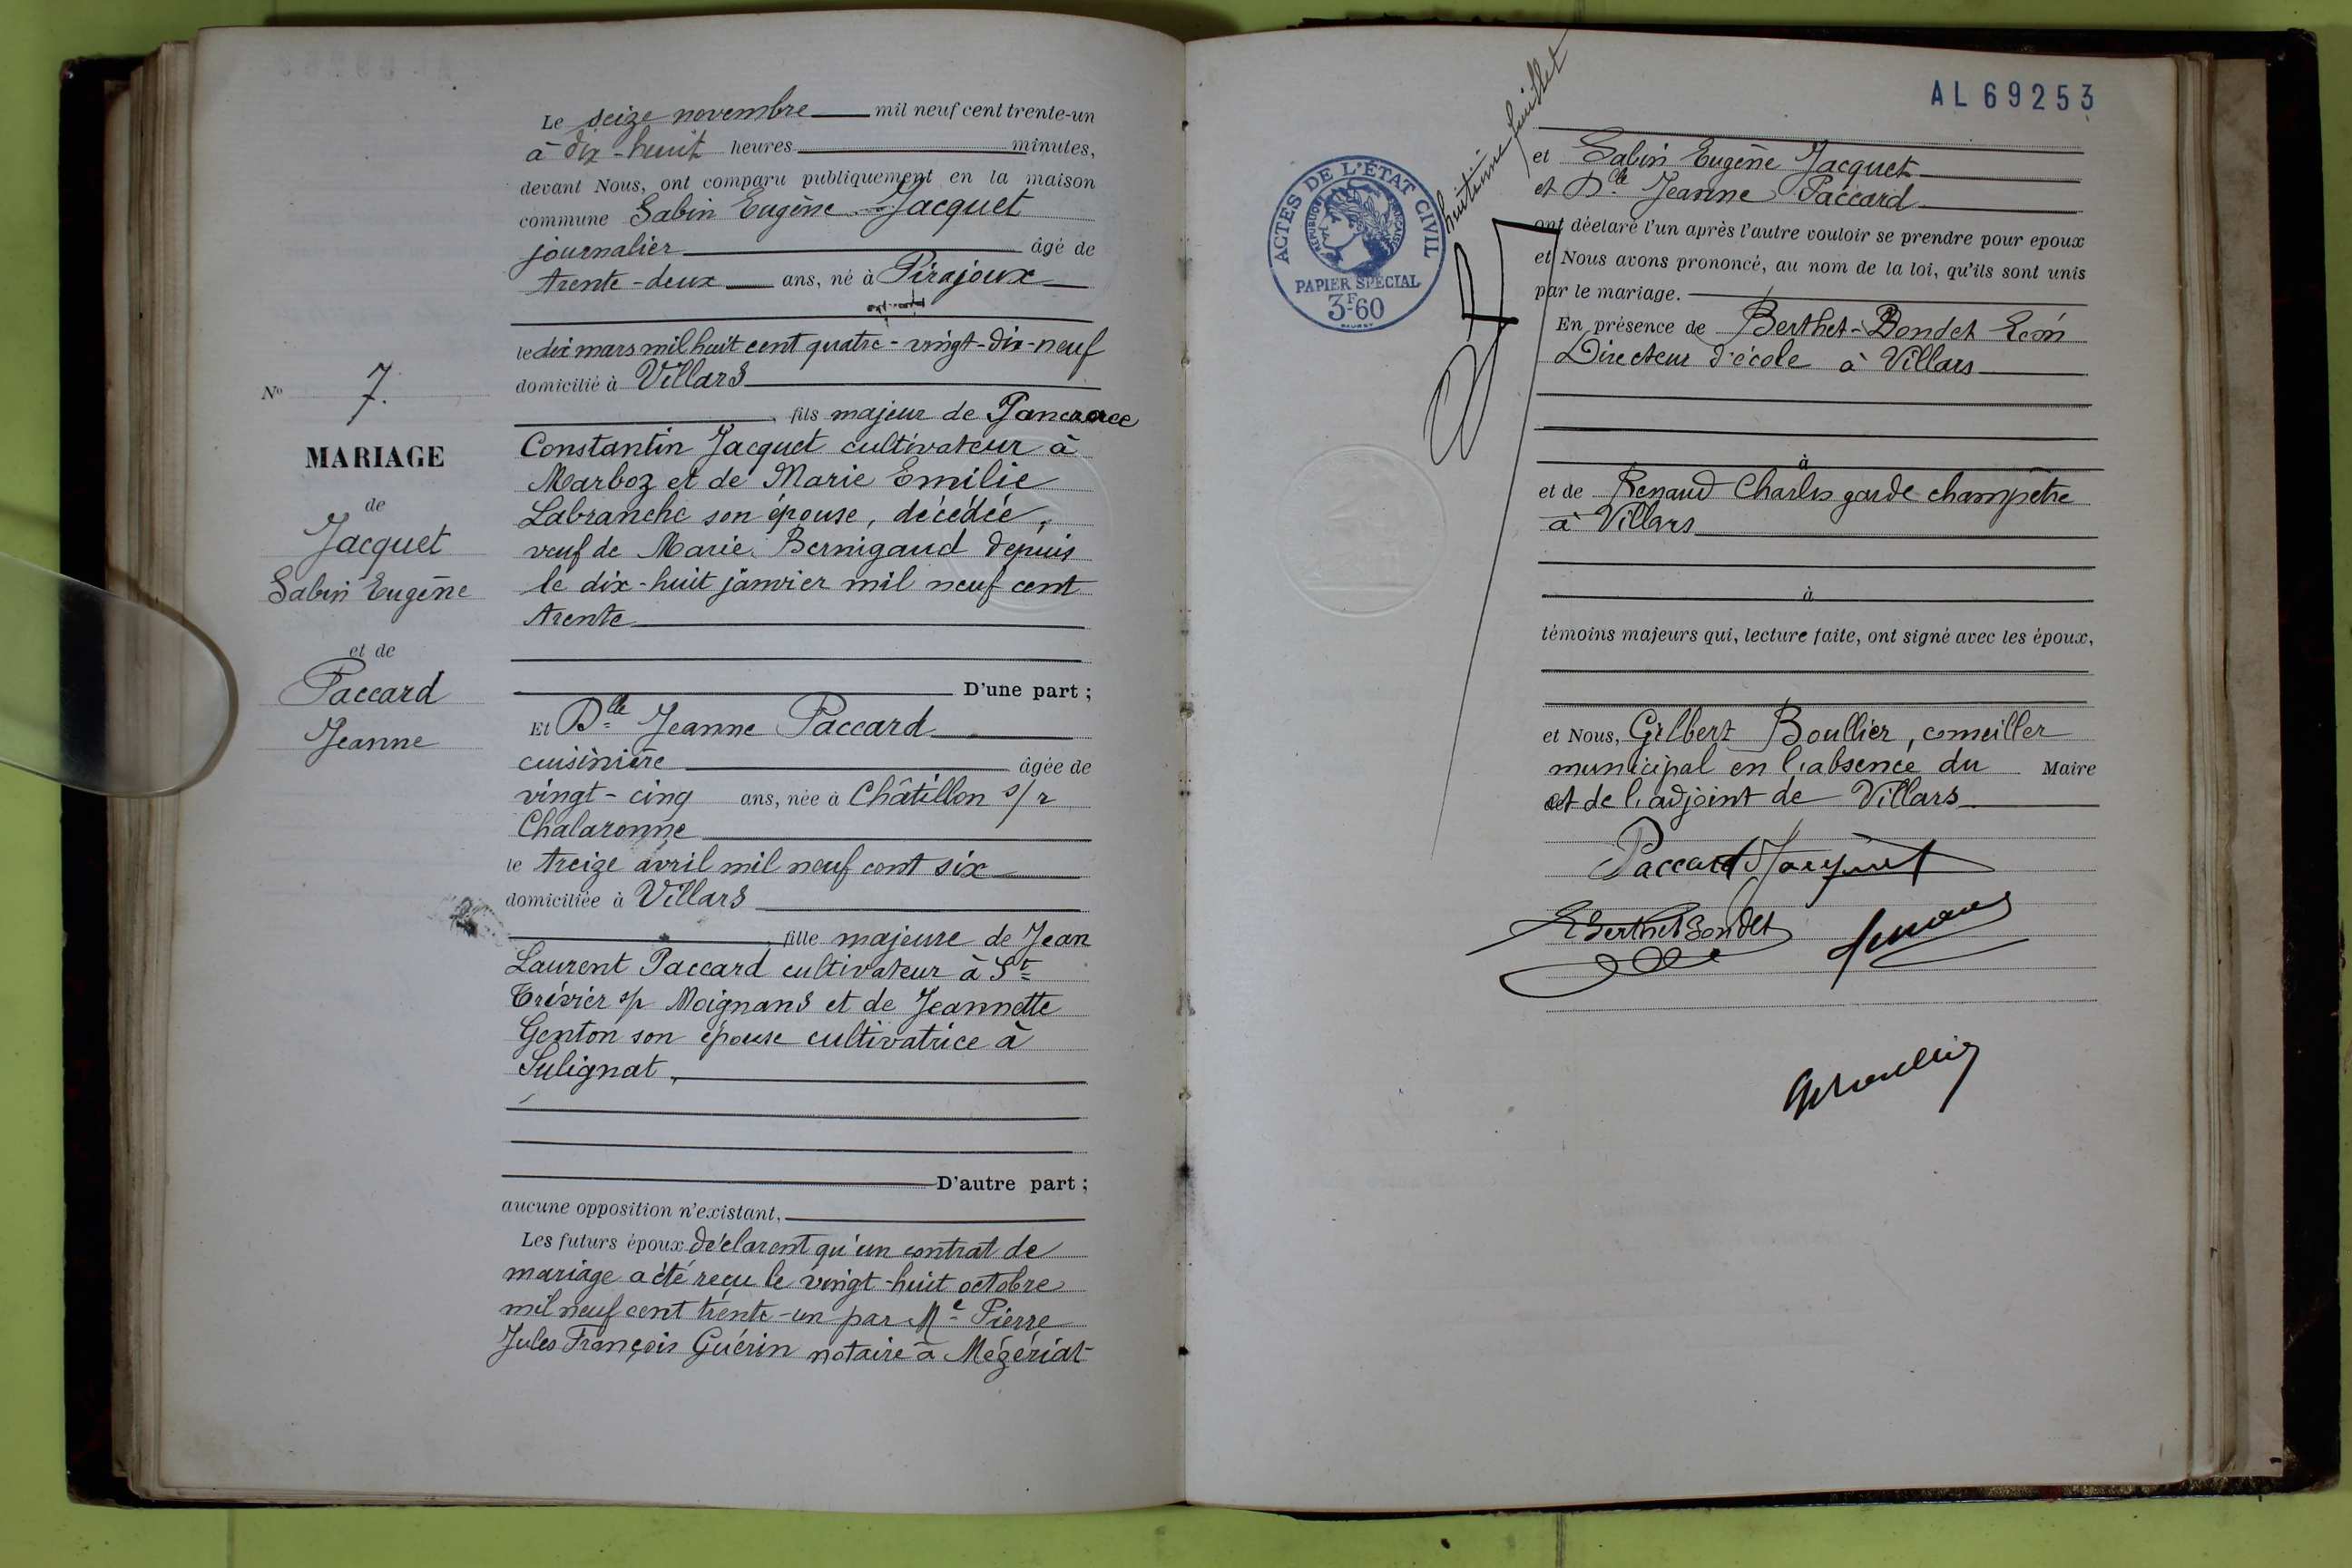 Le seize novembre mil neuf cent trente-un
à dix-huit heures minutes,
devant Nous, ont comparu publiquement en la maison
commune Sabin Eugène Jacquet
journalier âgé de
trente-deux ans, né à Pirajoux
le dix mars mil huit cent quatre-vingt-dix-neuf
domicilié à Villars
fils majeur de Pancrace
Constantin Jacquet cultivateur à
Marboz et de Marie Emilie
Labranche son épouse, décédée,
veuf de Marie Bernigaud depuis
le dix-huit janvier mil neuf cent
trente
D'une part ;
Et Dlle Jeanne Paccard
cuisinière âgée de
vingt-cinq ans, née à Châtillon s/r
Chalaronne
le treize avril mil neuf cent six
domiciliée à Villars
fille majeure de Jean
Laurent Paccard cultivateur à St
Trivier s/r Moignans et de Jeannette
Genton son épouse cultivatrice à
Sulignat,
D'autre part ;
aucune opposition n'existant,
Les futurs époux déclarent qu'un contrat de
mariage a été reçu le vingt-huit octobre
mil neuf cent trente-un par Me Pierre
Jules François Guérin notaire à Mézériat
No 7.
MARIAGE
de
Jacquet
Sabin Eugène
et de
Paccard
Jeanne
huitième feuillet
ACTES DE L'ÉTAT CIVIL
RÉPUBLIQUE FRANÇAISE
PAPIER SPÉCIAL
3F60
AL 69253
et Sabin Eugène Jacquet
et Dlle Jeanne Paccard
ont déclaré l'un après l'autre vouloir se prendre pour epoux
et Nous avons prononcé, au nom de la loi, qu'ils sont unis
par le mariage.
En présence de Berthet-Bondet Léon
Directeur d'école à Villars
à
et de Renaud Charles garde champêtre
à Villars
à
témoins majeurs qui, lecture faite, ont signé avec les époux,
et Nous, Gilbert Boullier, conseiller
municipal en l'absence du Maire
et de l'adjoint de Villars
Paccard Jacquet
LBerthetBondet